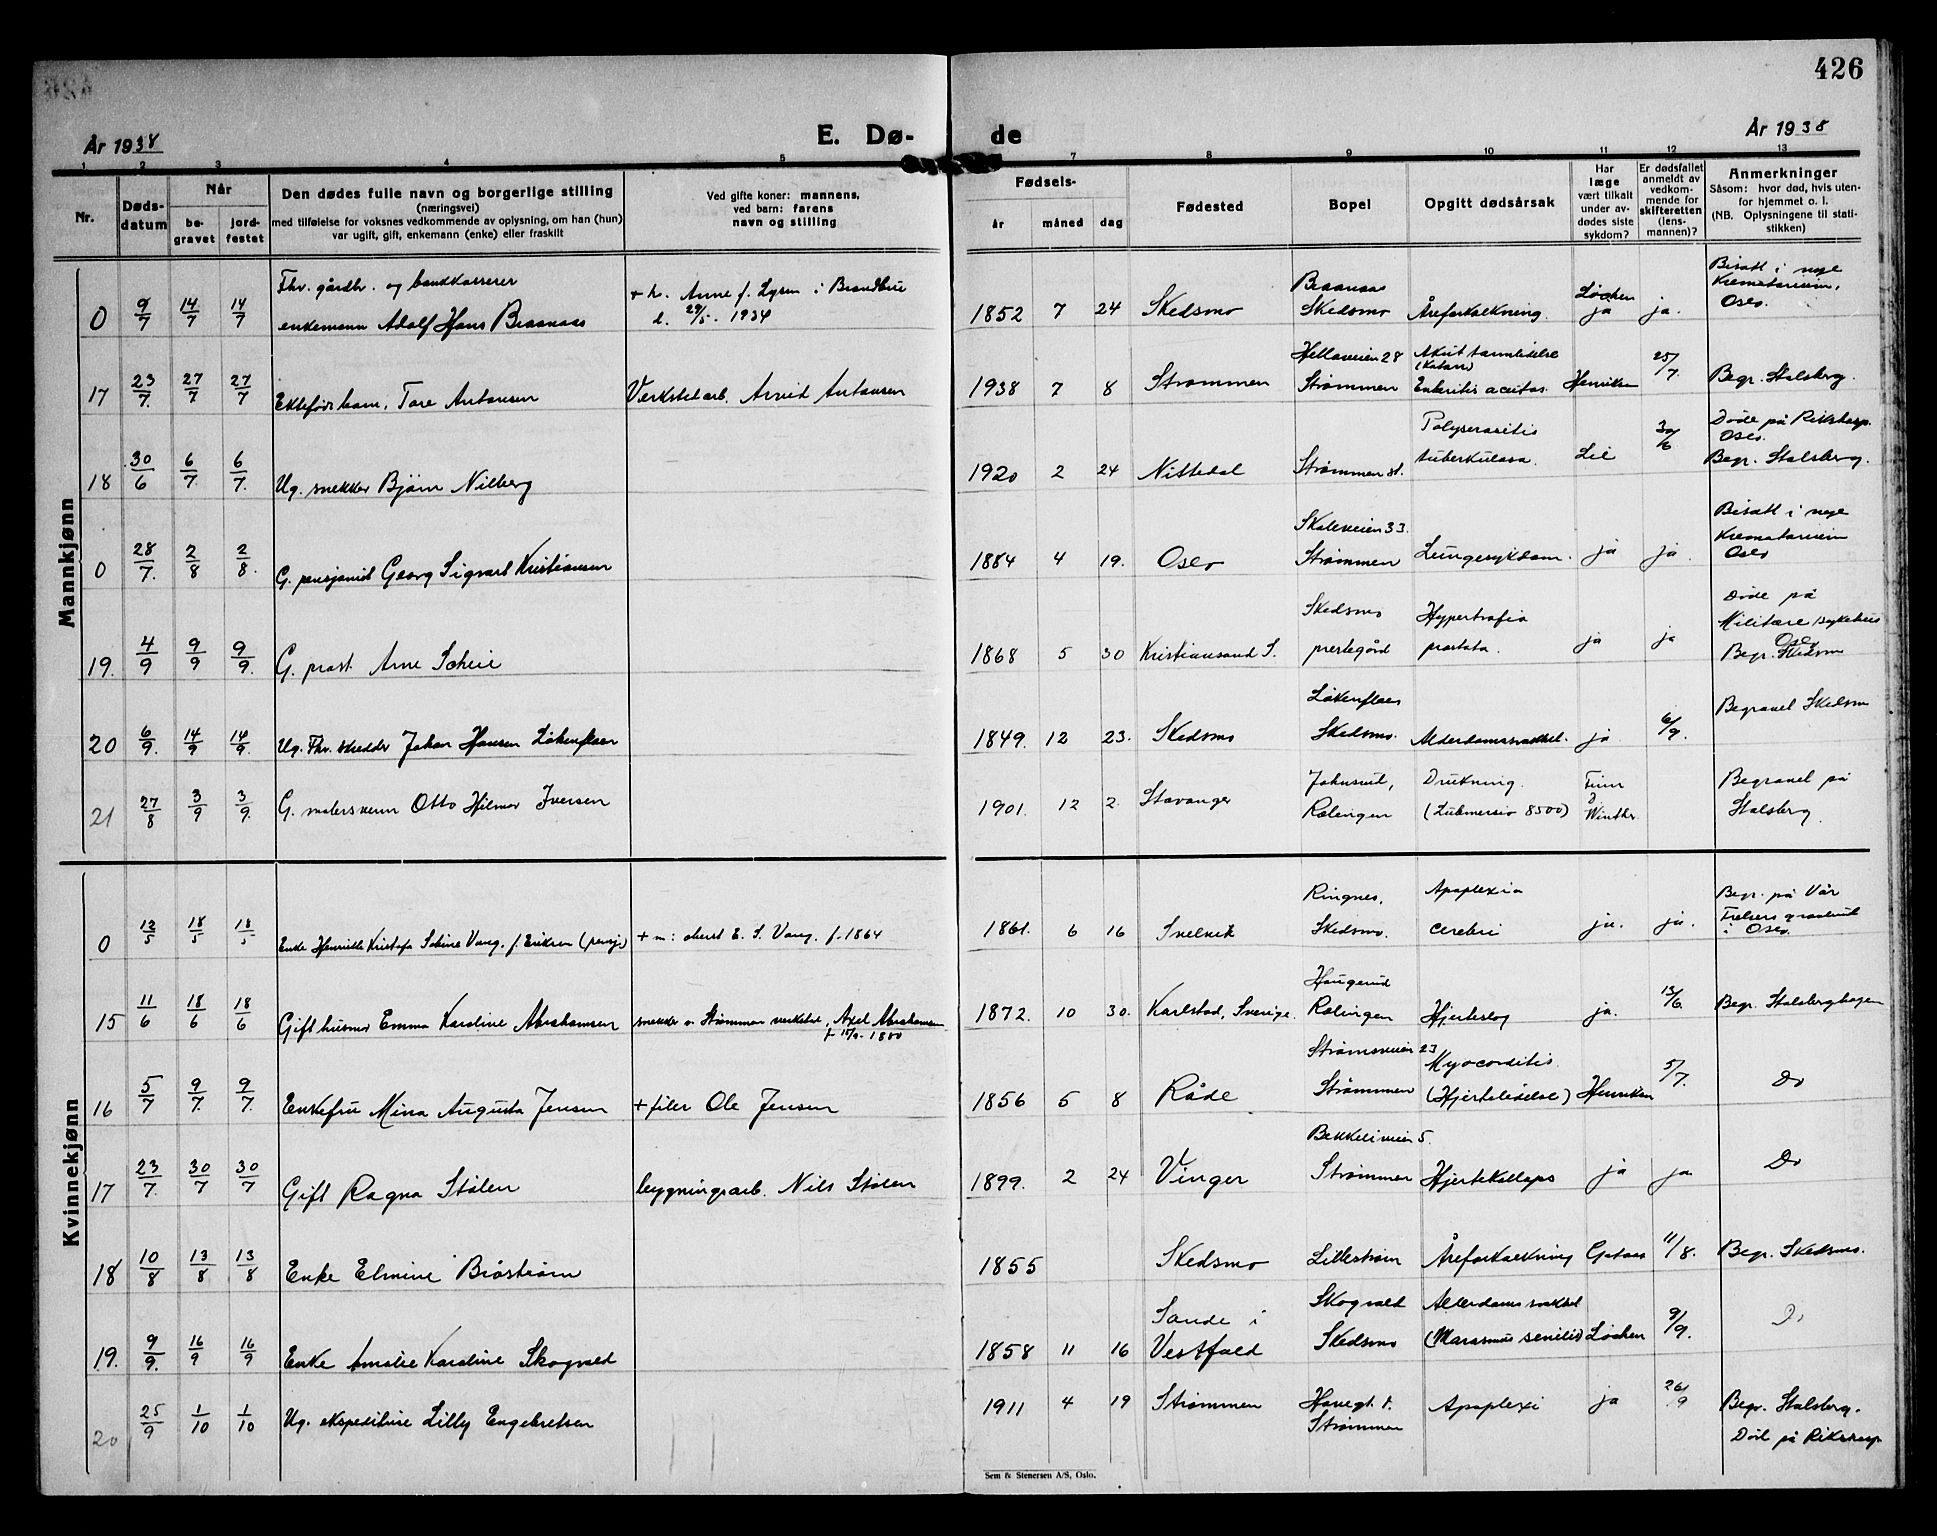 426
År 1938
E. Dø-
de
År 1938
1 2 3 4 5 7 8 9 10 11 12 13
Nr.
Døds-
datum
Når
be-
gravet
jord-
festet
Den dødes fulle navn og borgerlige stilling
(næringsvei)
med tilføielse for voksnes vedkommende av oplysning, om han (hun)
var ugift, gift, enkemann (enke) eller fraskilt
Ved gifte koner: mannens,
ved barn: farens
navn og stilling
Fødsels-
år måned dag
Fødested
Bopel
Opgitt dødsårsak
Har
læge
vært tilkalt
under av-
dødes siste
sykdom?
Er dødsfallet
anmeldt av
vedkom-
mende for
skifteretten
(lens-
mannen)?
Anmerkninger
Såsom: hvor død, hvis uten-
for hjemmet o. l.
(NB. Oplysningene til stati-
stikken)
Mannkjønn
0 9/7 14/7 14/7 Fhv. gårdbr. og bankkasserer
enkemann Adolf Hans Braanaas
+ h. Anne f. Lysen i Brandbu
d. 29/5 1934
1852 7 24 Skedsmo
Braanaas
Skedsmo
Åreforkalkning.
Løchen
ja
ja.
Bisatt i nye
Krematorium,
Oslo.
17 23/7. 27/7 27/7 Ektefødt barn, Tore Antonsen
Verkstedarb. Arvid Antonsen
1938 7 8 Strømmen
Hellaveien 28
Strømmen
Akut tarmlidelse
(Katarr)
Enteritis acutas.
Henriksen
25/7.
Begr. Stalsberg.
18 30/6 6/7. 6/7. Ug. snekker Bjørn Nilberg
1920 2 24 Nittedal
Strømmen st.
Polyserositis
tuberkulosa.
Lie
30/6
Døde på Rikshosp.
Oslo.
Begr. Stalsberg.
0 28/7. 2/8 2/8. G. pensjonist Georg Sigvart Kristiansen
1884 4 19. Oslo
Skoleveien 33.
Strømmen
Lungesykdom.
ja
ja
Bisatt i nye
Krematorium
Oslo
19. 4/9 9/9 9/9. G. prost Arne Scheie
1868 5 30 Kristiansand S.
Skedsmo
prestegård
Hypertrofia
prostata.
ja
ja
Døde på
Militære sykehus
Oslo
Begr. Skedsm
20 6/9. 14/9. 14/9. Ug. Fhv. skredder Johan Hansen Løkenflaen
1849. 12 23. Skedsmo
Løkenflaen
Skedsmo.
Alderdomssvakhet.
ja
6/9.
Begravet Skedsm
21 27/8 3/9 3/9. G. malersvenn Otto Hilmar Iversen
1901. 12 2. Stavanger
Johnsrud,
Rælingen
Drukning.
(Submersio 8500)
Finn
Winthr.
Begravet på
Stalsberg.
Kvinnekjønn
0 12/5 18/5 18/5 Enke Henriette Kristofa Sabine Vang. f. Eriksen (pensj)
+ m: oberst E. S. Vang. f. 1864
1861. 6 16 Svelvik
Ringnes,
Skedsmo.
Apoplexia
cerebri
ja.
ja.
Begr. på Vår
Frelsers gravlund
i Oslo.
15 11/6 18/6 18/6 Gift husmor Emma Karoline Abrahamsen
snekker v. Strømmen verksted, Axel Abrahamsen
1872. 10 30. Karlstad, Sverige.
Haugerud
Rælingen
Hjerteslag
ja.
13/6.
Begr. Stalsberghagen
16 5/7 9/7. 9/7. Enkefru Mina Augusta Jensen
+ filer Ole Jensen
1856 5 8 Råde
Strømsveien 23
Strømmen
Myocorditis.
(Hjertelidelse)
Henriksen
5/7.
Do
17 23/7. 30/7 30/7 Gift Ragna Stølen
bygningsarb. Nils Stølen
1899. 2 24 Vinger
Bekkeliveien 5.
Strømmen
Hjertekollaps
ja
ja
Do
18 10/8 13/8 13/8 Enke Elmine Brøstrøm
1855 Skedsmo
Lillestrøm
Åreforkalkning
11/8.
Begr. Skedsmo.
19. 9/9. 16/9 16/9 Enke Amalie Karoline Skogvold
1858 11 16
Sande i
Vestfold
Skogvold
Skedsmo
Alderdomssvakhet
(Marasmus senilis)
Løchen
9/9.
Do
20 25/9 1/10 1/10 Ug. ekspeditrise Lilly Engebretsen
1911 4 19 Strømmen
Strømmen
Apoplexi
ja
26/9
Begr. Stalsberg.
Død på Rikshosp.
Sem & Stenersen A/S, Oslo.